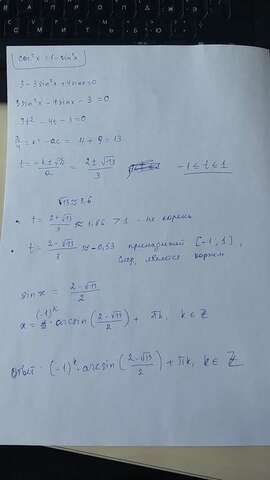 cos²x = 1 - sin²x
3 - 3sin²x + 4sinx = 0
3sin²x - 4sinx - 3 = 0
3t² - 4t - 3 = 0
= k² - ac = 4 + 9 = 13
t = = 2 ± √13 / 3 -1 ≤ t ≤ 1
√13 ≈ 3,6
• t = 2 + √13 / 3 ≈ 1,86 > 1 - не корень
• t = 2 - √13 / 3 ≈ -0,53 принадлежит [-1, 1],
след, корнем
sin x = 2 - √13 / 2
x = (-1)^k · arcsin (2 - √13 / 2) + πk, k ∈ Z
Ответ: (-1)^k · arcsin (2 - √13 / 2) + πk, k ∈ Z